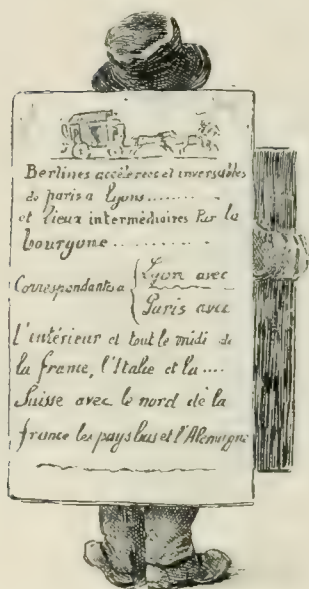 Berlines accélérées et inversables
de paris a lyons........
et lieux intermédiaires Par la
bourgone..........
Correspondantes a { Lyon avec
Paris avec
L'entérieur et tout le midi de
la france, l'Italie et la ....
Suisse avec le nord de la
france les pays bas et l'Alemagne